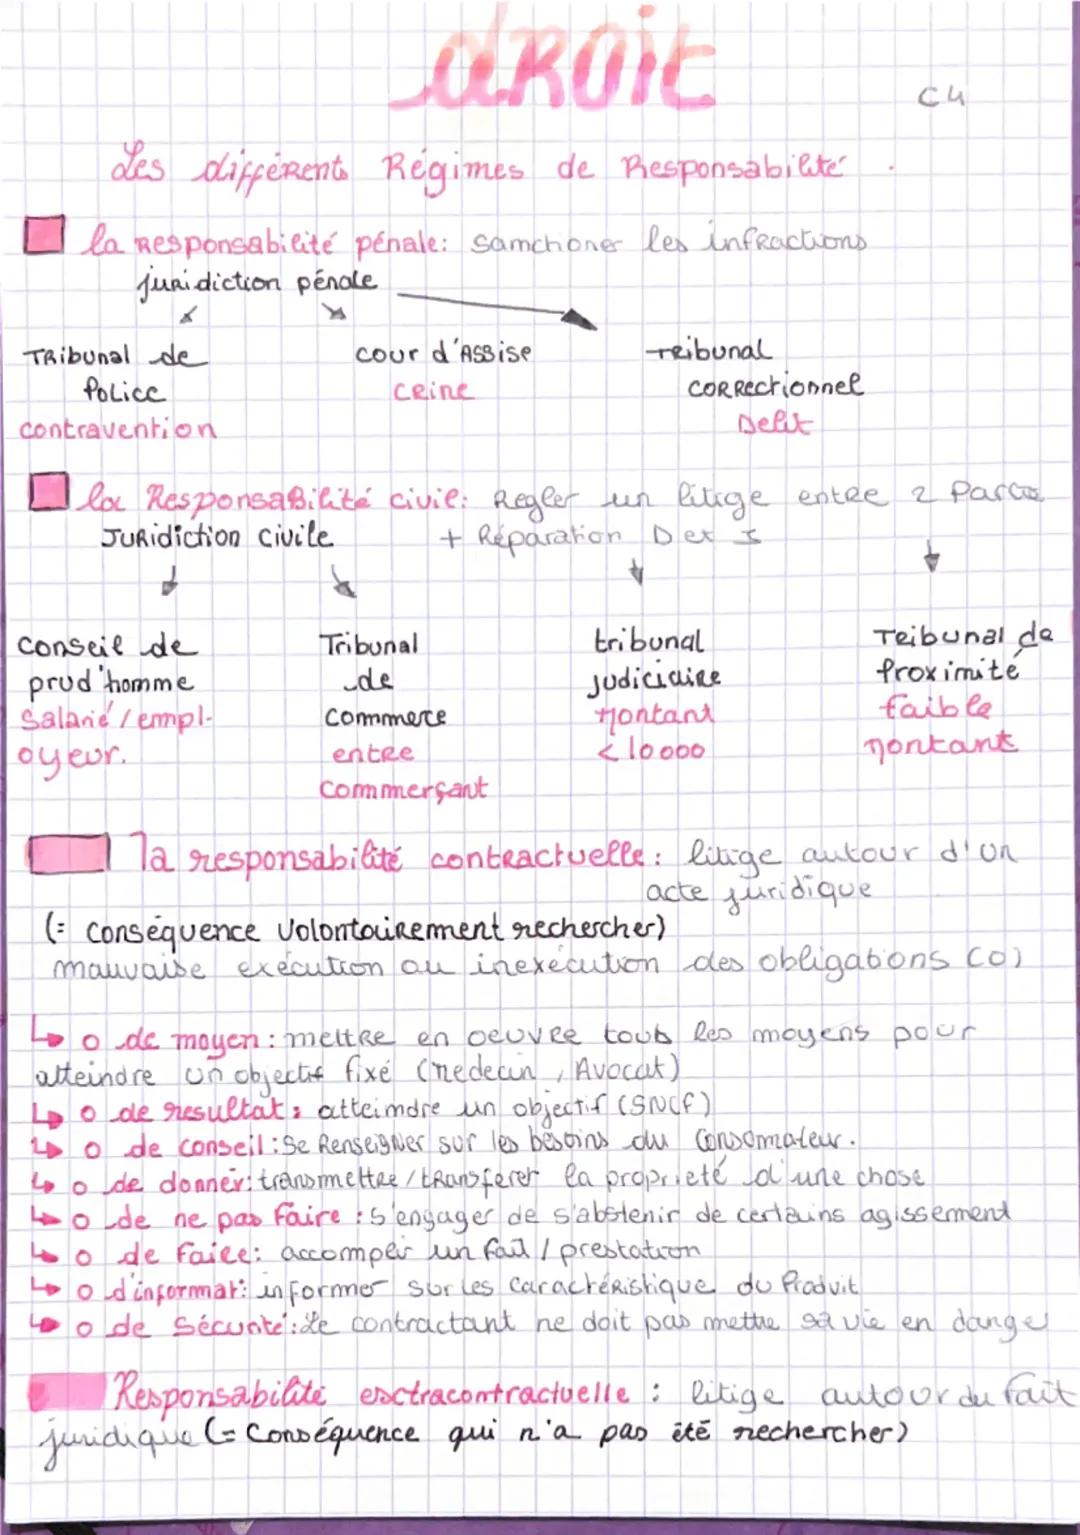 droit
C4
Les différents Régimes de Responsabilité.
la Responsabilité pénale: samchioner les infractions
juridiction pénale
Tribunal de Police contravention
cour d'Assise crine
Tribunal correctionnel Delit
la Responsabilité civil: Regler un litige entre 2 Partie
Juridiction civile + Réparation D et I
conseil de prud'homme salarié/employeur.
Tribunal de commerce entre commerçant
tribunal judiciaire Montant < 10 000
Tribunal de Proximité faible montant
la responsabilité contractuelle: litige autour d'un
acte juridique
(= conséquence volontairement rechercher)
mauvaise exécution ou inexécution des obligations (O)
↳ o de moyen: mettre en oeuvre tout les moyens pour
atteindre un objectif fixé (medecin, Avocat)
↳ o de resultat: atteimdre un objectif (SNCF)
↳ o de conseil: Se Renseigner sur les besoins du consomateur.
↳ o de donner: transmettre/transferer la propriété d'une chose
↳ o de ne pas faire: s'engager de s'abstenir de certains agissement
↳ o de faire: accomplir un fait/prestation
↳ o d'informat: informer sur les caractéristique du Produit
↳ o de Sécurité: Le contractant ne doit pas mettre sa vie en danger
Responsabilité exctracontractuelle: litige autour du fait
juridique (= Conséquence qui n'a pas été rechercher)